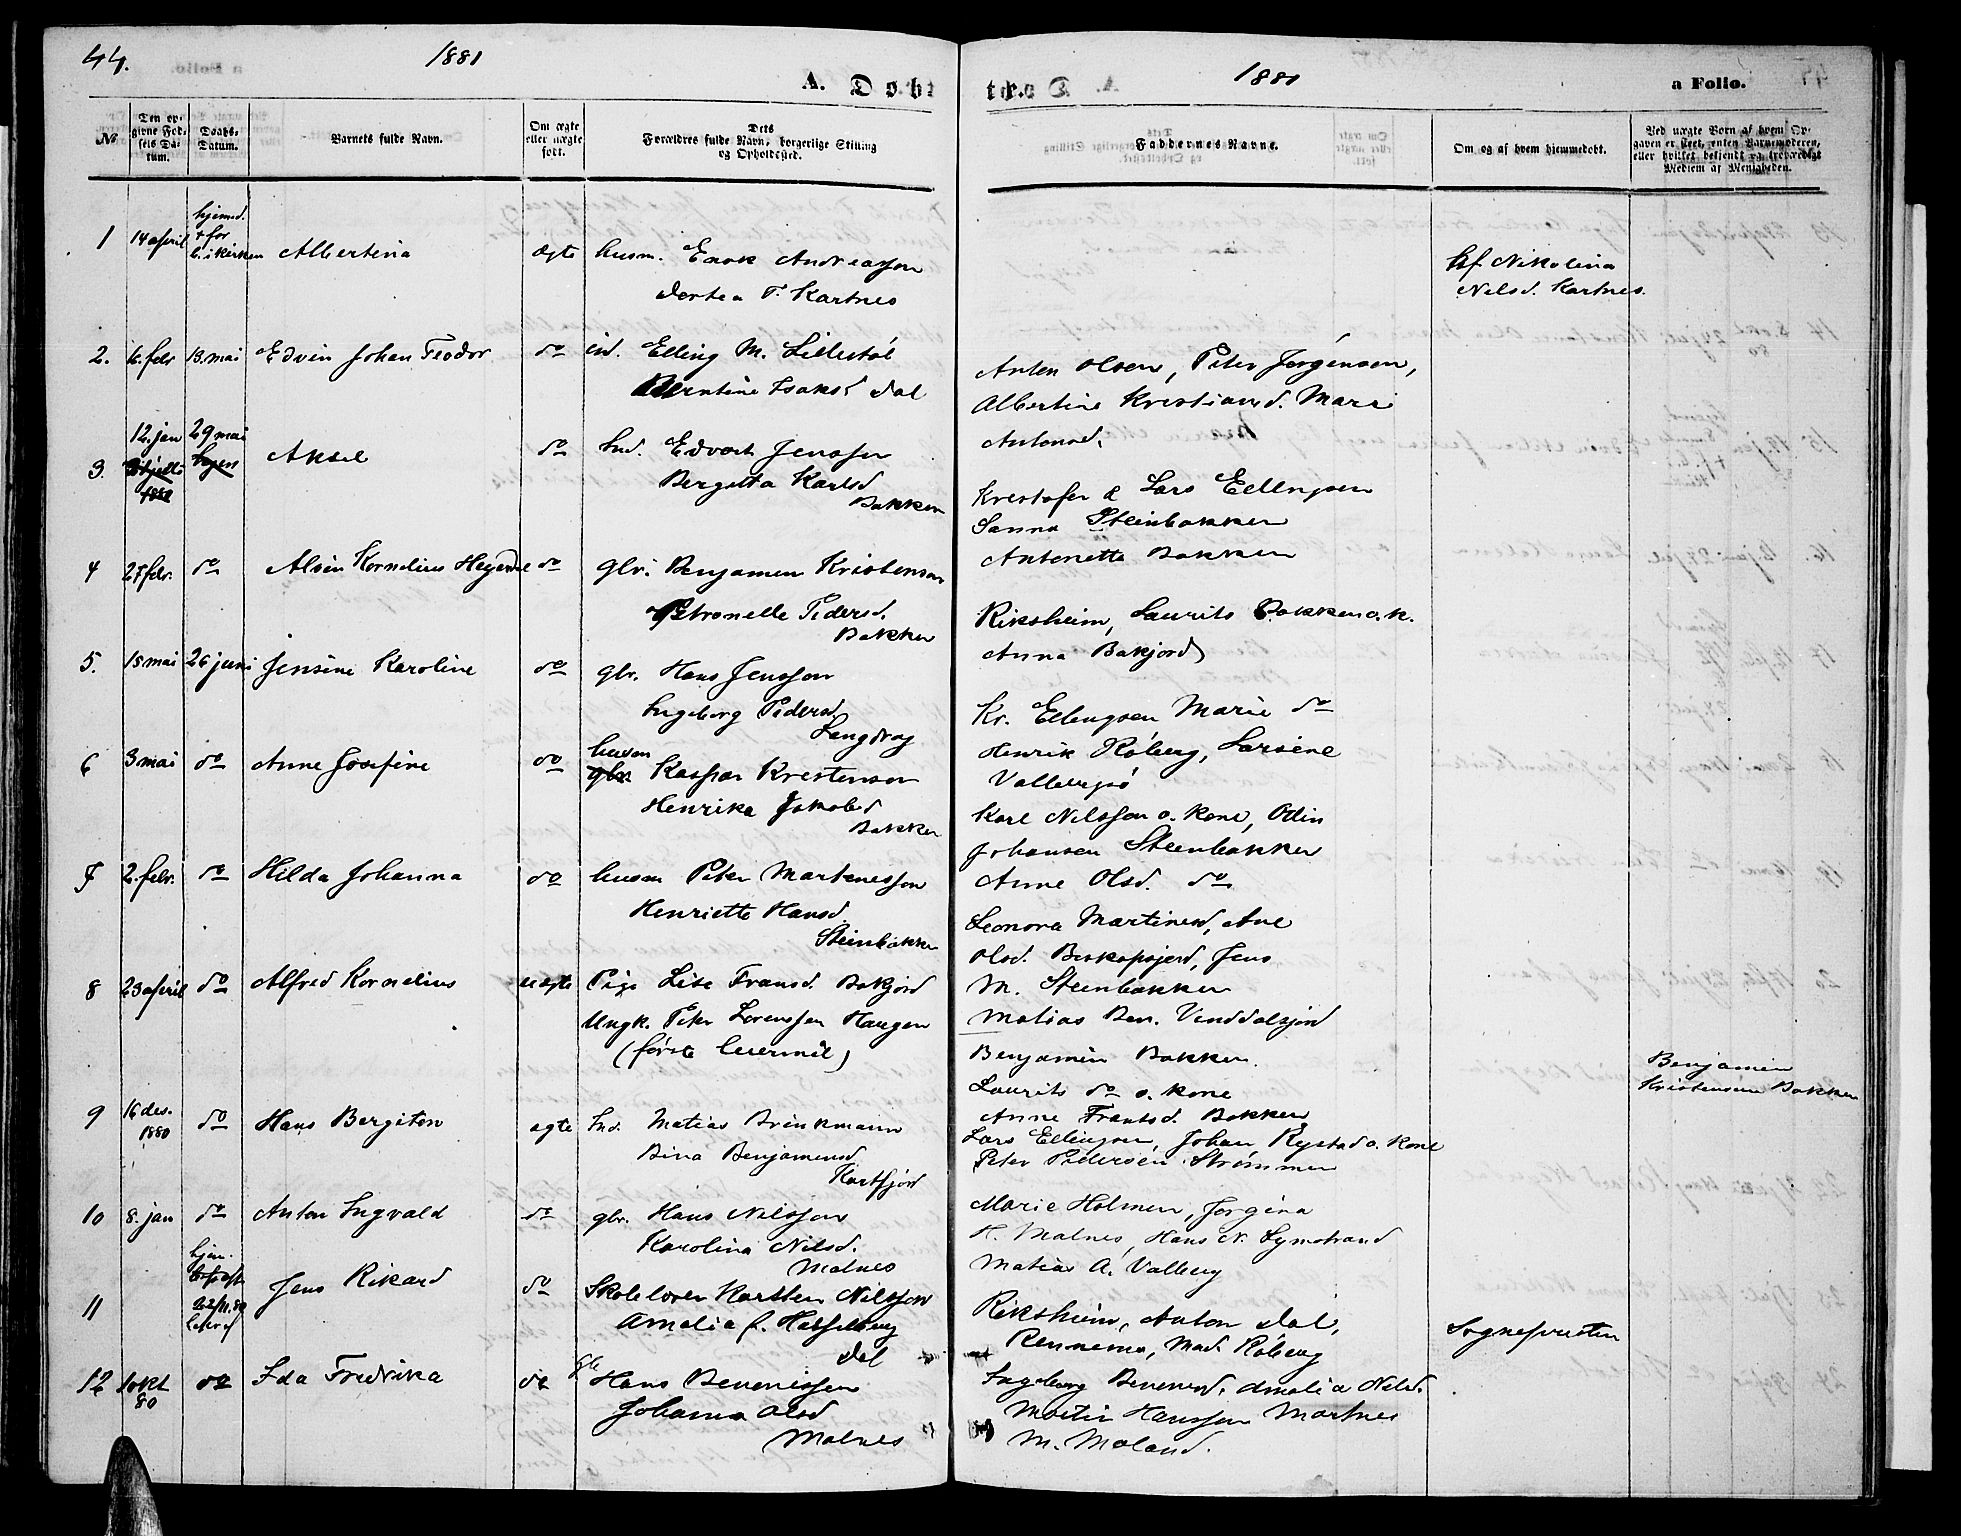 44.
1881
A. Døbt
1881
a Folio.
№
Den opgivne Fødsels Datum.
Daabs-Datum.
Barnets fulde Navn.
Om ægte eller uægte født.
Dets Forældres fulde Navn, borgerlige Stilling og Opholdssted.
Faddernes Navne.
Om og af hvem hjemmedøbt.
Ved uægte Børn af hvem Opgaven er skeet, enten Barnemoderen, eller hvilket bekjendt og troværdigt Medlem af Menigheden.
hjemd.
+ før
1 14 april b. i kirken Albertina ægte husm. Enok Andreasson
Dortea T. Kartnes
af Nikolina
Nilsd. Kartnes.
2. 16. febr 13. mai Edvin Johan Teodor do ind. Elling M. Lillestøl
Berntine Isaksd Dal
Anton Olsen, Peter Jørgensen,
Albertine Kristiansd. Marie
Antonsd.
12. jan 29 mai
3. Aksel do Ind. Edvart Jensson
Bergitta Karlsd
Bakken
Kristofer & Lars Ellingsen
Sanna Steinbakken
Antonette Bakken
4 27 febr. do Alvin Kornelius do gbr. Benjamin Kristenson
Petronelle Pedersd.
Bakken
Riksheim, Laurits Bakken o. k.
Anna Bakjord
5. 15 mai 26 juni Jensine Karoline do gbr. Hans Jensson
Ingeborg Pedersd.
Langvag
Kr. Ellingsen Marie do
Henrik Røberg, Larsene
6 3 mai do Anne Josefine do husm Kaspar Kristenson
Henrika Jakobsd
Bakken
Karl Nilsson o. kone, Odin
Johansen Steenbakken
Anne Olsd. do
7 2. febr. do Hilda Johanna do husm Peter Martenesson
Henriette Hansd.
Steinbakken
Leonora Martinesd, Ane
Olsd. Biskopsjord, Jens
M. Steenbakken
Matias Ben. Vinddalsjord
8 23 april do Alfred Kornelius uægte Pige Lise Fransd. Bakjord
Ungk. Peter Lorenssen Haugen
(første leiermål)
Benjamin Bakken
Laurits do o. kone
Anne Frantsd. Bakken
Benjamin
Kristensen Bakken
9 16 des. 1880 do Hans Bergiton ægte Ind. Matias Brinkmann
Bina Benjaminsd
Kartfjord
Lars Ellingsen, Johan Rystad o. kone
Peter Pedersen Strømmen
10 8. jan do Anton Ingvald do gbr. Hans Nilsson
Karolina Nilsd.
Malnes
Marie Holmen, Jørgina
H. Malnes, Hans N. Lynstrand
Matias A. Valberg
hjem.
11 Jens Rikard do Skolelærer Karsten Nilsson
Amalia f. Hasselberg
Dal
Riksheim, Anton Dal,
Rennemo, Mad. Røberg
Sognepresten
12 1 okt 80 do Ida Fredrika do gbr Hans Benenissen
Johanna Olsd
Malnes
Ingeborg Benenisd. Amalia Nilsd.
Martin Hansson Martnes
M. Moland.